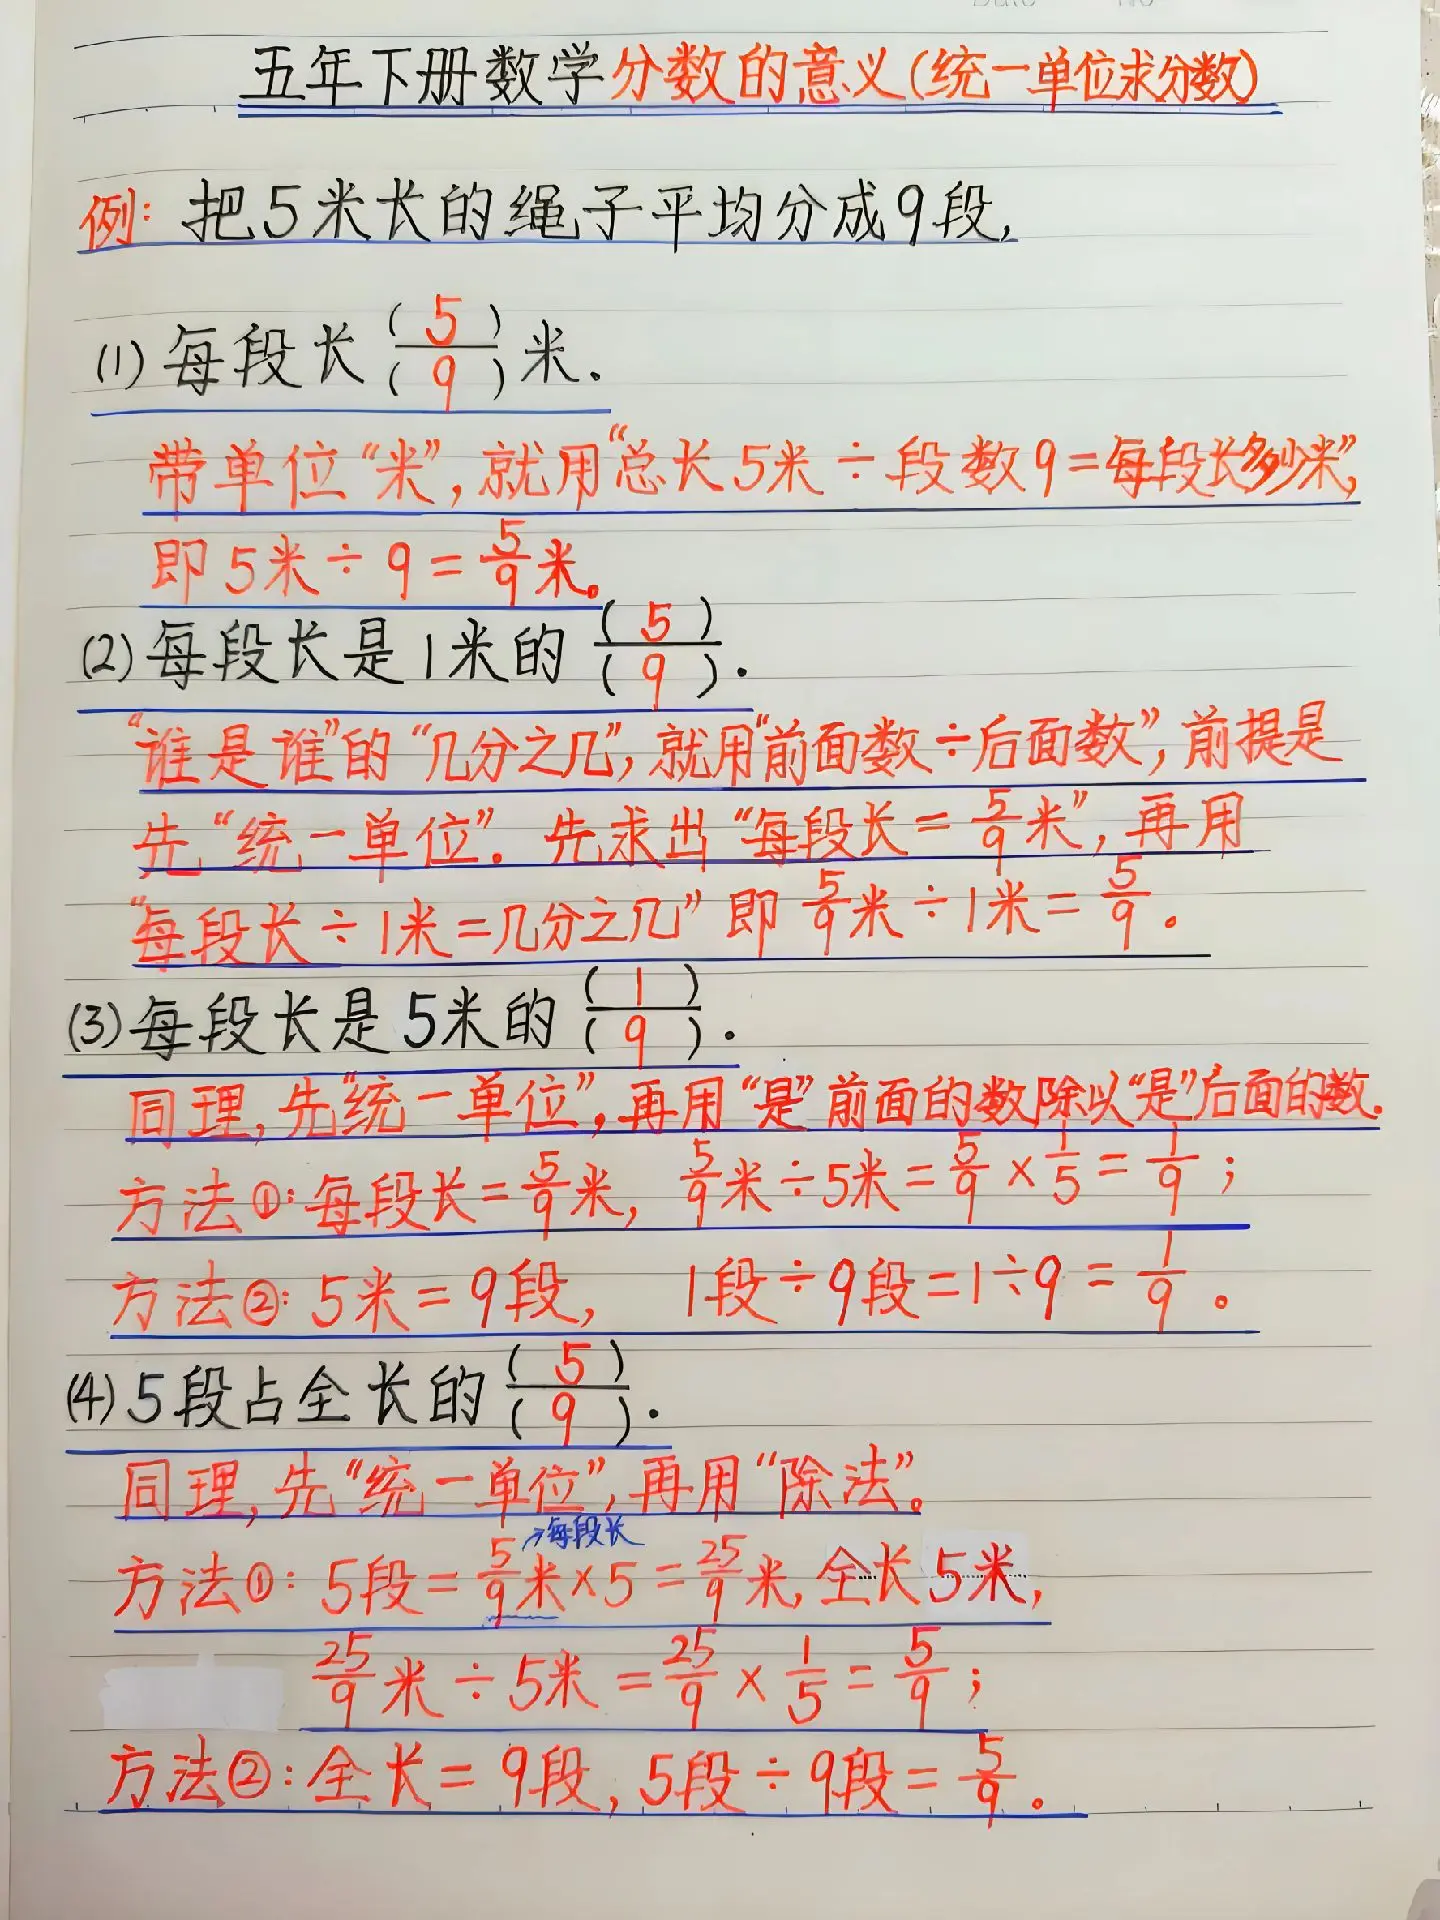 五年下册数学分数的意义(统一单位求分数)
例: 把5米长的绳子平均分成9段,
(1) 每段长 (5)/(9) 米.
带单位“米”, 就用“总长5米÷段数9=每段长多少米”,
即 5米÷9=5/9米。
(2) 每段长是1米的 (5)/(9).
“谁是谁”的“几分之几”, 就用“前面数÷后面数”, 前提是
先“统一单位”。先求出“每段长=5/9米”, 再用
“每段长÷1米=几分之几”即 5/9米÷1米=5/9。
(3) 每段长是5米的 (1)/(9).
同理, 先“统一单位”, 再用“是”前面的数除以“是”后面的数.
方法①: 每段长=5/9米, 5/9米÷5米=5/9×1/5=1/9;
方法②: 5米=9段, 1段÷9段=1÷9=1/9。
(4) 5段占全长的 (5)/(9).
同理, 先“统一单位”, 再用“除法”。
→每段长
方法①: 5段=5/9米×5=25/9米, 全长5米,
25/9米÷5米=25/9×1/5=5/9;
方法②: 全长=9段, 5段÷9段=5/9。